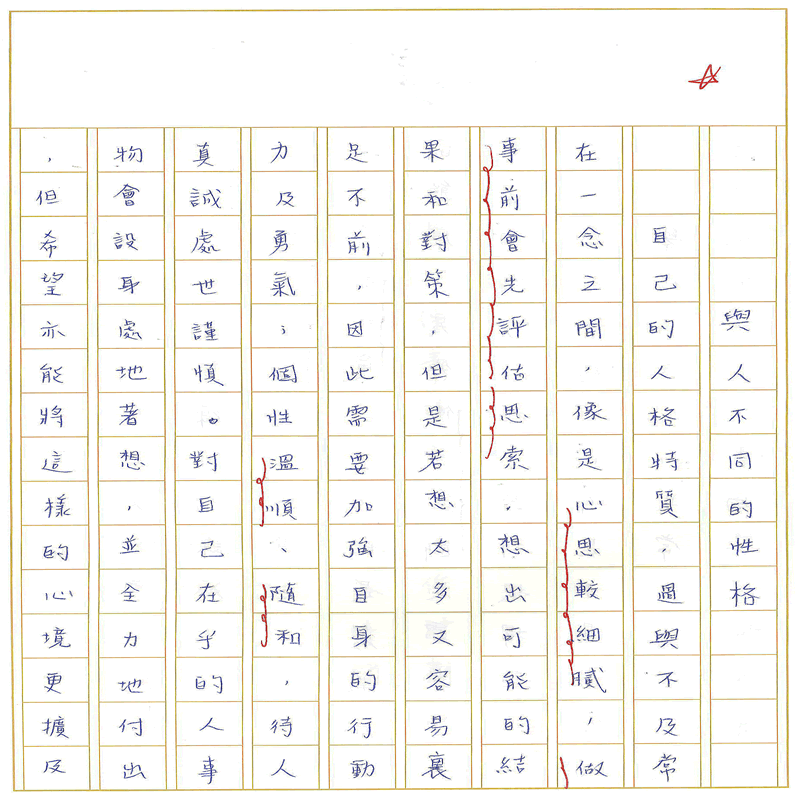 與人不同的性格
自己的人格特質，過與不及常
在一念之間，像是心思較細膩，做
事前會先評估思索，想出可能的結
果和對策，但是若想太多又容易裹
足不前，因此需要加強自身的行動
力及勇氣；個性溫順、隨和，待人
真誠處世謹慎。對自己在乎的人事
物會設身處地著想，並全力地付出
，但希望亦能將這樣的心境更擴及